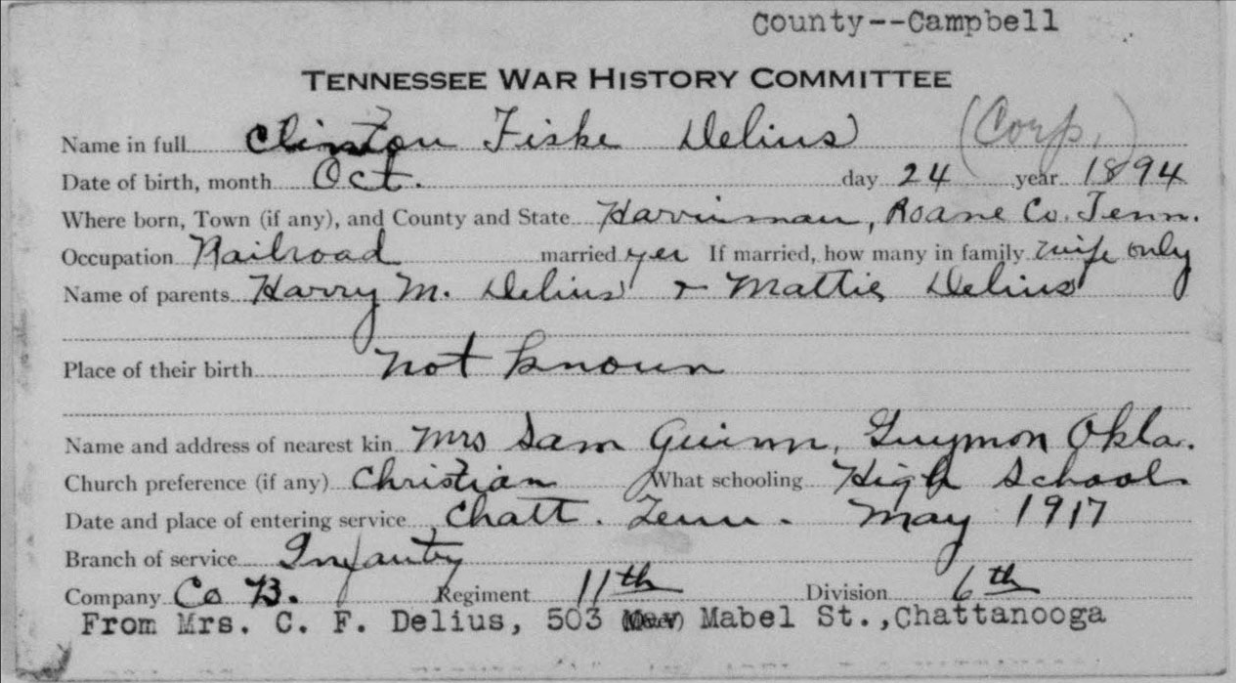 County--Campbell
TENNESSEE WAR HISTORY COMMITTEE
Name in full Clinton Fiske Delius (Corp.)
Date of birth, month Oct. day 24 year 1894
Where born, Town (if any), and County and State Harriman, Roane Co. Tenn.
Occupation Railroad married yes If married, how many in family wife only
Name of parents Harry M. Delius & Mattie Delius
Place of their birth not known
Name and address of nearest kin Mrs Sam Guinn, Guymon Okla.
Church preference (if any) Christian What schooling High School
Date and place of entering service Chatt. Tenn. May 1917
Branch of service Infantry
Company Co B. Regiment 11th Division 6th
From Mrs. C. F. Delius, 503 Mabel St.,Chattanooga